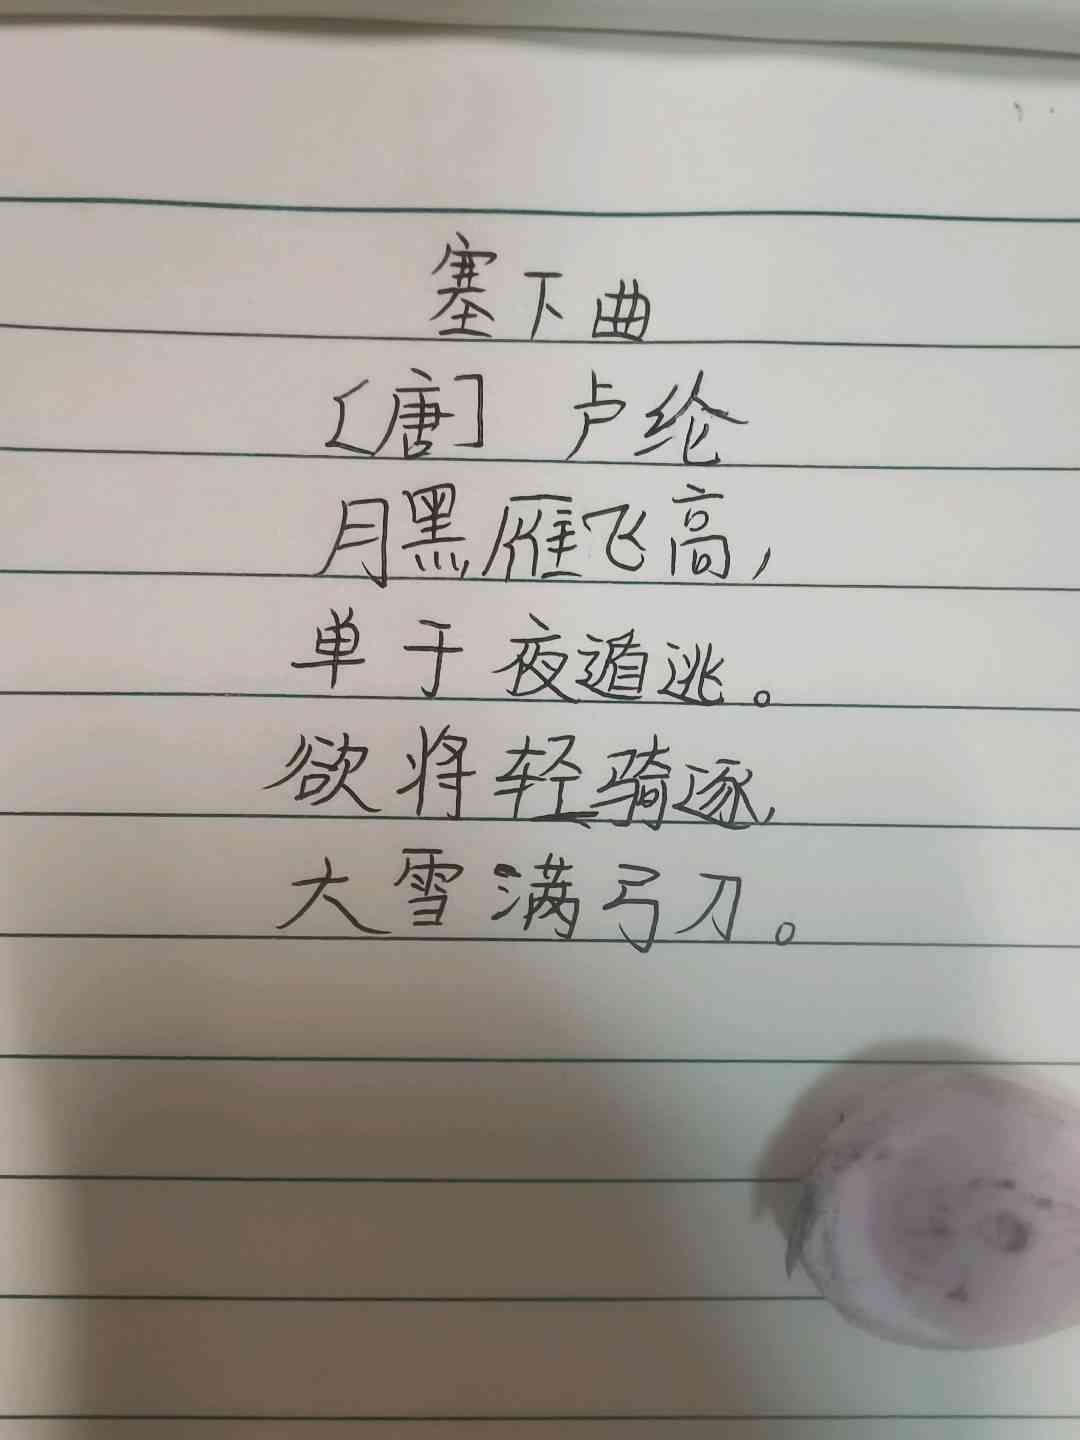 塞下曲
[唐] 卢纶
月黑雁飞高,
单于夜遁逃。
欲将轻骑逐,
大雪满弓刀。